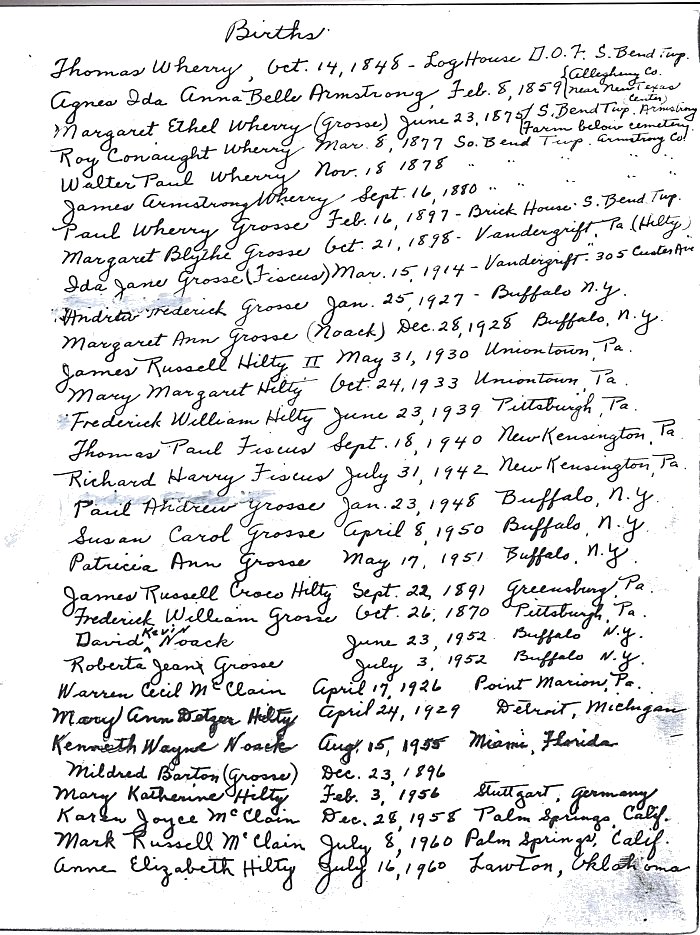 Births
Thomas Wherry, Oct. 14, 1848 - Log House D.O.F. S. Bend Twp.
Agnes Ida AnnaBelle Armstrong, Feb. 8, 1859 {Allegheny Co. near New Texas Center
Margaret Ethel Wherry (Grosse) June 23, 1875 {S. Bend Twp. Armstrong Farm below cemetery
Roy Conaught Wherry Mar. 8, 1877 So. Bend Twp. Armstrong Co.
Walter Paul Wherry Nov. 18 1878 " " " "
James Armstrong Wherry Sept. 16, 1880 " " " "
Paul Wherry Grosse Feb. 16, 1897 - Brick House - S. Bend Twp.
Margaret Blythe Grosse Oct. 21, 1898 - Vandergrift, Pa (Hilty)
Ida Jane Grosse (Fiscus) Mar. 15, 1914 - Vandergrift " 305 Custer Ave
Andrew Frederick Grosse Jan. 25, 1927 - Buffalo N.Y.
Margaret Ann Grosse (Noack) Dec. 28, 1928 Buffalo, N.Y.
James Russell Hilty II May 31, 1930 Uniontown, Pa.
Mary Margaret Hilty Oct. 24, 1933 Uniontown, Pa.
Frederick William Hilty June 23, 1939 Pittsburgh, Pa.
Thomas Paul Fiscus Sept. 18, 1940 New Kensington, Pa
Richard Harry Fiscus July 31, 1942 New Kensington, Pa.
Paul Andrew Grosse Jan. 23, 1948 Buffalo, N.Y.
Susan Carol Grosse April 8, 1950 Buffalo, N.Y.
Patricia Ann Grosse May 17, 1951 Buffalo, N.Y.
James Russell Croco Hilty Sept. 22, 1891 Greensburg, Pa.
Frederick William Grosse Oct. 26, 1870 Pittsburgh, Pa.
David Kevin Noack June 23, 1952 Buffalo N.Y.
Roberta Jean Grosse July 3, 1952 Buffalo N.Y.
Warren Cecil McClain April 17, 1926 Point Marion, Pa.
Mary Ann Dotzer Hilty April 24, 1929 Detroit, Michigan
Kenneth Wayne Noack Aug. 15, 1955 Miami, Florida
Mildred Barton (Grosse) Dec. 23, 1896
Mary Katherine Hilty Feb. 3, 1956 Stuttgart, Germany
Karen Joyce McClain Dec. 28, 1958 Palm Springs, Calif.
Mark Russell McClain July 8, 1960 Palm Springs, Calif.
Anne Elizabeth Hilty July 16, 1960 Lawton, Oklahoma